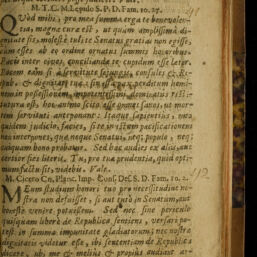 M. T. C. M. Lepido S. P. D. Fam. 10. 27.
Quod mihi, pro mea summa erga te benevolen-
tia, magnæ curæ est, ut quam amplissima di-
gnitate sis, moleste tuli te Senatui gratias non egisse,
cum esses ab eo ordine ornatus summis honoribus.
Pacis inter cives conciliandæ te cupidum esse lætor.
Eam si a servitute sejungis, consules & Rei-
pub. & dignitati tuæ: sin
nem in possessionem impotentissimi dominatus resti-
tutura est, hoc animo scito esse omnes sanos, ut mor-
tem servituti anteponant. Itaque sapientius, mea
quidem judicio, facies, si te in istam pacificationem
non interpones, quæ neque Senatui, neque populo, nec
cuiquam bono probatur. Sed hæc audies ex aliis, aut
certior fies literis. Tu, pro tua prudentia, quid opti-
mum factu sit, videbis. Vale.
M. Cicero Cn. Planc. Imp. Cons. Des. S. D. Fam. 10.
Meum studium honori tuo pro necessitudine no-
stra non defuisset, si aut tuto in Senatum, aut
honeste venire potuissem. Sed nec sine periculo
quisquam libere de Republica sentiens, versari po-
test in summa impunitate gladiorum; nec nostræ
dignitatis videtur esse, ibi sententiam de Republica
dicere, ubi me & melius & propius audiant ar-